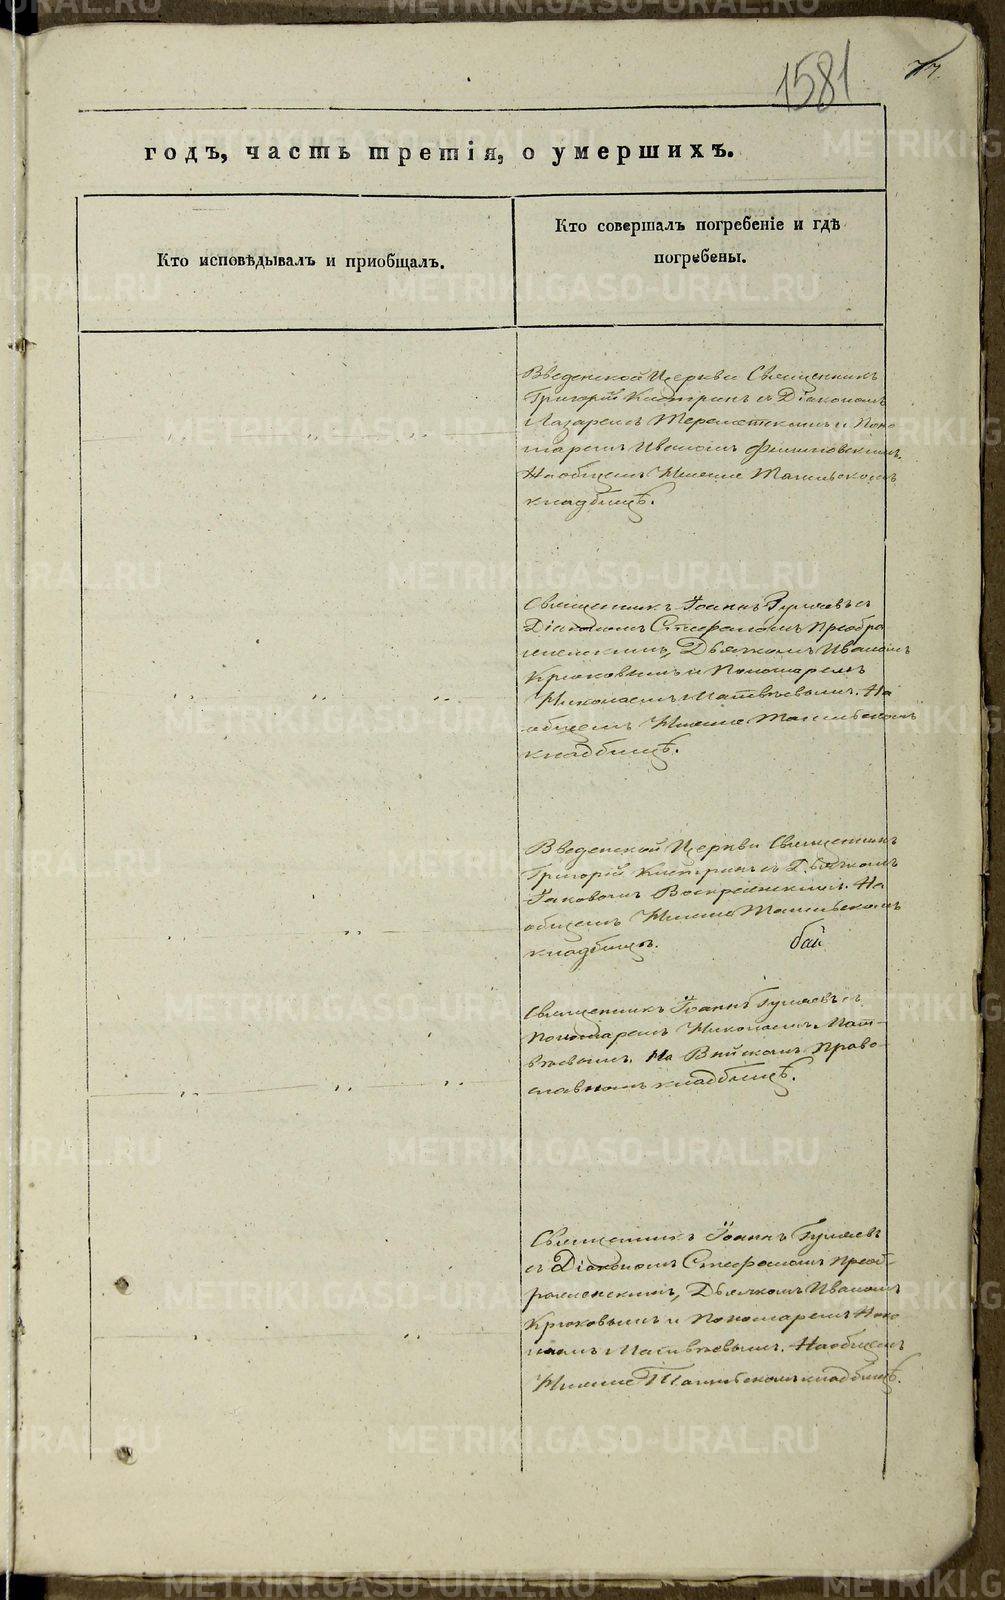 1581
77.
годъ, часть третія, о умершихъ.
Кто исповѣдывалъ и приобщалъ.
Кто совершалъ погребеніе и гдѣ
погребены.
Введенской Церкви Священникъ
Григорій съ Діакономъ
Лазаремъ и Поно-
маремъ Иваномъ
На общемъ Нижне Тагильскомъ
кладбищѣ.
Священникъ Іоаннъ Гуляевъ съ
Діакономъ Стефаномъ Преобра
женскимъ, Дьячкомъ Иваномъ
Крюковымъ и Пономаремъ
Николаемъ Матвѣевымъ. На
общемъ Нижне Тагильскомъ
кладбищѣ.
Введенской Церкви Священникъ
Григорій съ Дьячкомъ
Іаковомъ Воскресенскимъ. На
общемъ Нижне Тагильскомъ
кладбищѣ.
бай
Священникъ Іоаннъ Гуляевъ съ
Пономаремъ Николаемъ Мат-
вѣевымъ. На Выйскомъ Право-
славномъ кладбищѣ.
Священникъ Іоаннъ Гуляевъ
съ Діакономъ Стефаномъ Преоб-
раженскимъ, Дьячкомъ Иваномъ
Крюковымъ и Пономаремъ Нико
лаемъ Матвѣевымъ. На общемъ
Нижне Тагильскомъ кладбищѣ.
METRIKI.GASO-URAL.RU